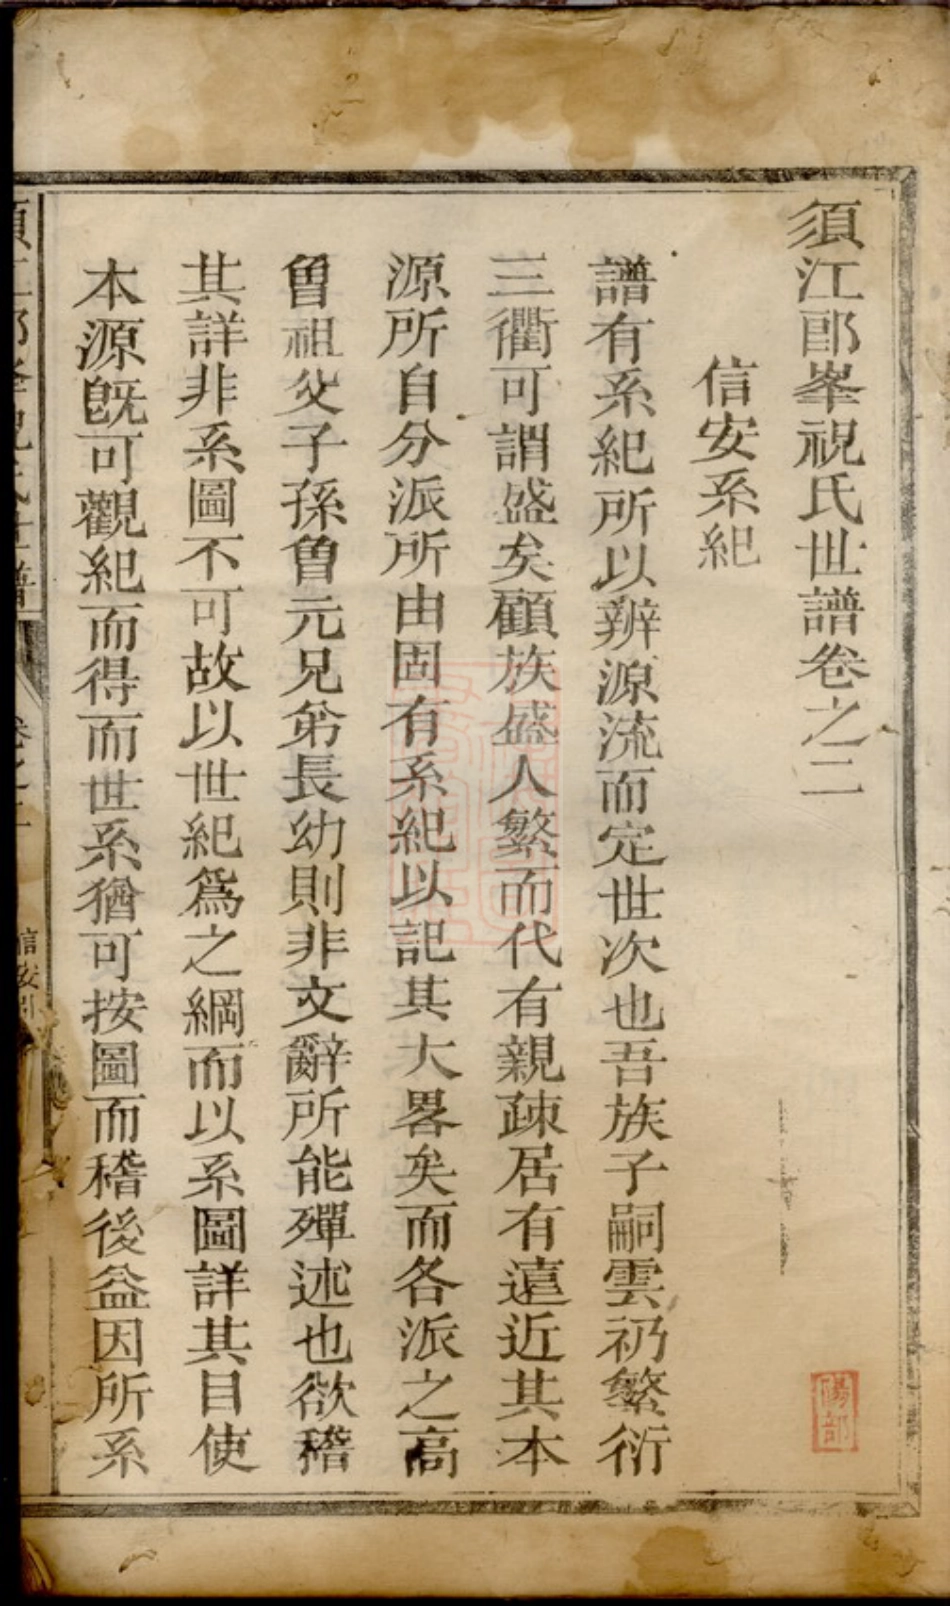 須江郎峯祝氏世譜卷之二
信安系紀
譜有系紀所以辨源流而定世次也吾族子嗣雲礽繁衍
三衢可謂盛矣顧族盛人繁而代有親疎居有遠近其本
源所自分派所由固有系紀以記其大畧矣而各派之高
曾祖父子孫曾元兄弟長幼則非文辭所能殫述也欲稽
其詳非系圖不可故以世紀爲之綱而以系圖詳其目使
本源旣可觀紀而得而世系猶可按圖而稽後益因所系